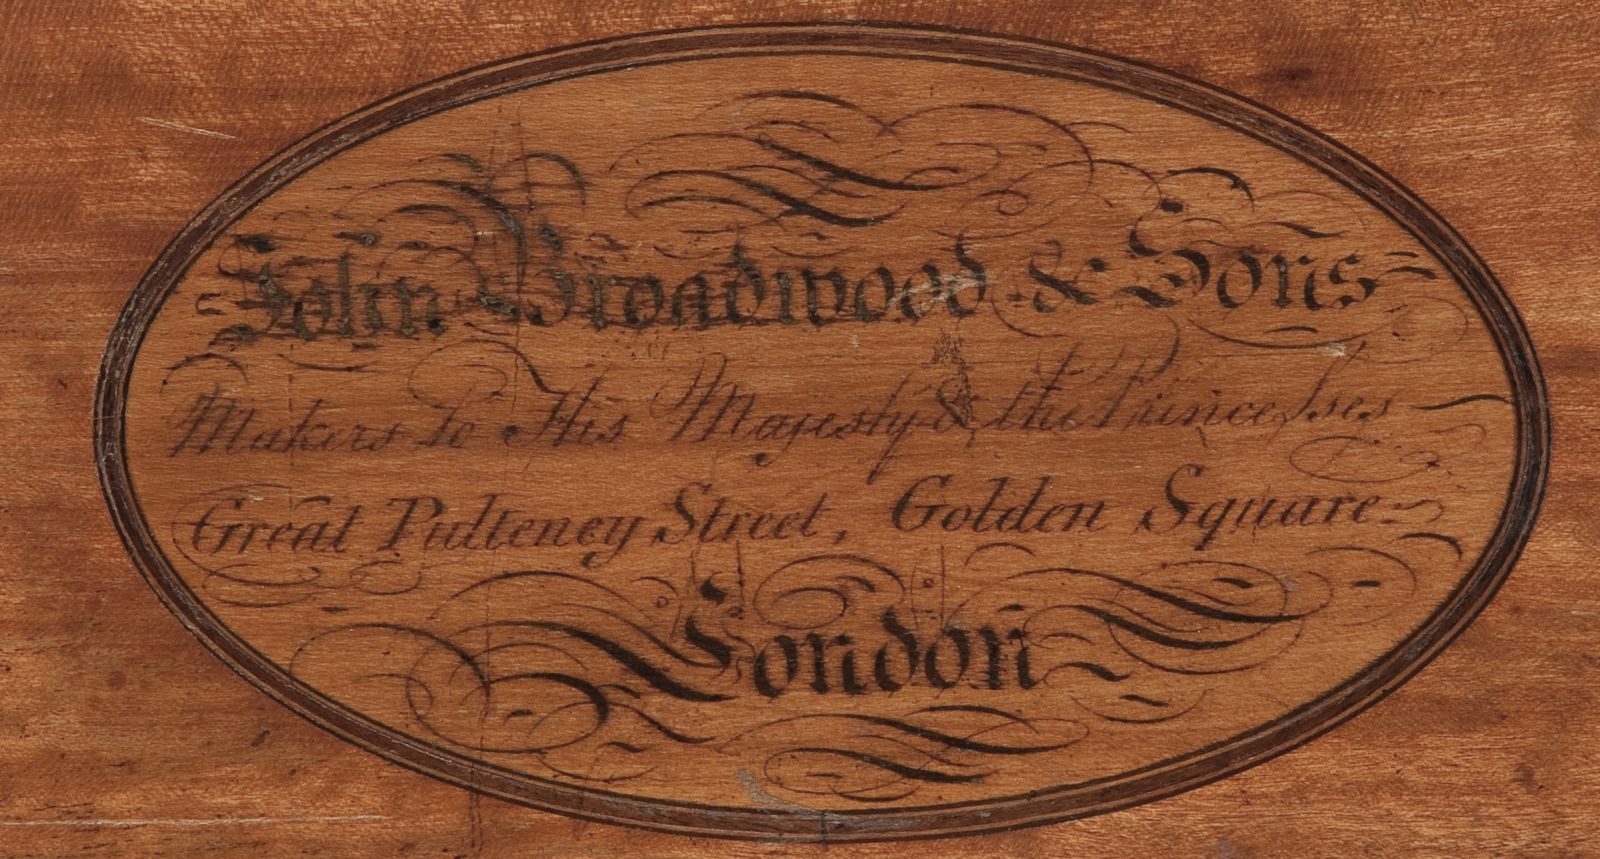 John Broadwood & Sons
Makers to His Majesty & the Princeſses
Great Pulteney Street, Golden Square
London